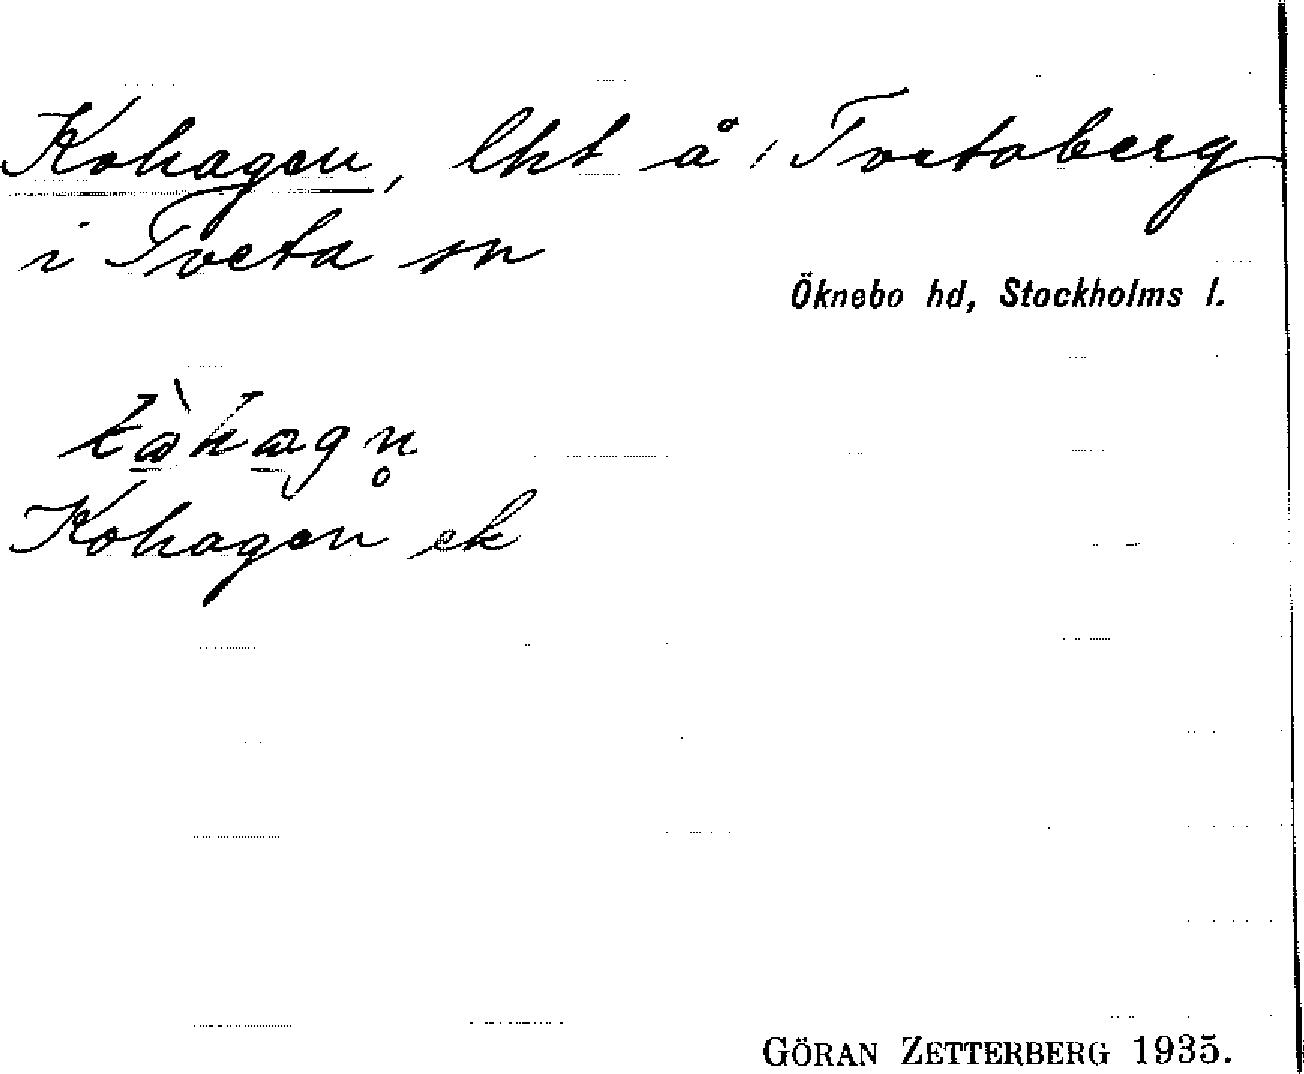 Kohagen, lht å Tvetaberg
i Tveta sn
Öknebo hd, Stockholms l.
Kohagen ek
GÖRAN ZETTERBERG 1935.